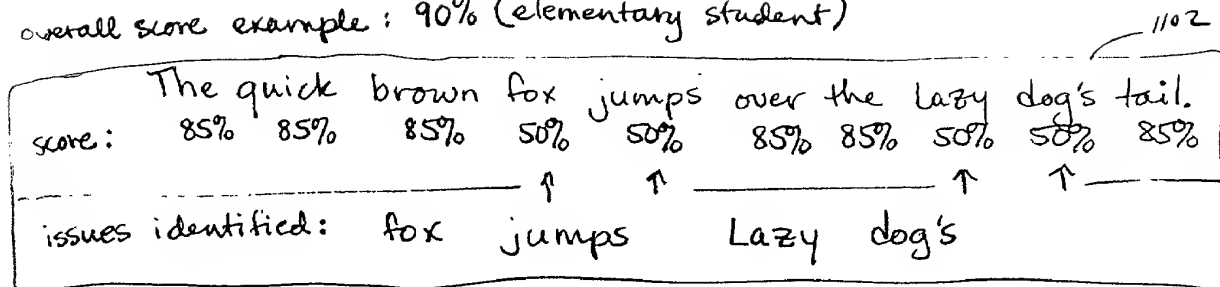 overall score example: 90% (elementary student)
1102
The quick brown fox jumps over the Lazy dog's tail.
score: 85% 85% 85% 50% 50% 85% 85% 50% 50% 85%
issues identified: fox jumps Lazy dog's